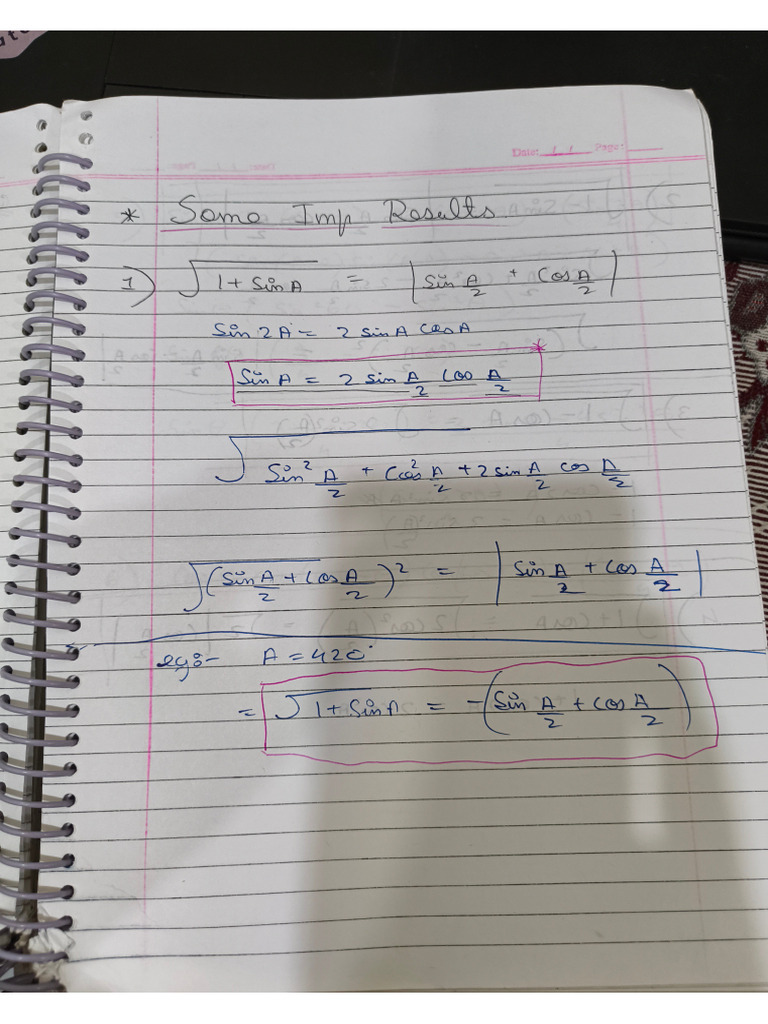 Date: / / Page:
* Some Imp Results
1) √(1 + sin A) = |sin A/2 + cos A/2|
sin 2A = 2 sin A cos A
sin A = 2 sin A/2 cos A/2 *
√(sin² A/2 + cos² A/2 + 2 sin A/2 cos A/2)
√((sin A/2 + cos A/2)²) = |sin A/2 + cos A/2|
eg:- A = 420°
= √(1 + sin A) = -(sin A/2 + cos A/2)